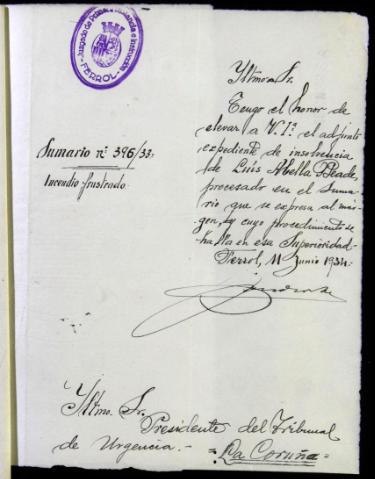 Juzgado de Primera Instancia e Instrucción
FERROL
Sumario nº 396/33.
Incendio frustrado
Yltmo. Sr.
Tengo el honor de
elevar a V.Iª. el adjunto
expediente de insolvencia
de Luis Abella Beade,
procesado en el Suma-
rio que se expresa al már-
gen, y cuyo procedimiento se
halla en esa Superioridad.
Ferrol, 11 Junio 1934.
Yltmo. Sr.
Presidente del Tribunal
de Urgencia.-
=La Coruña=